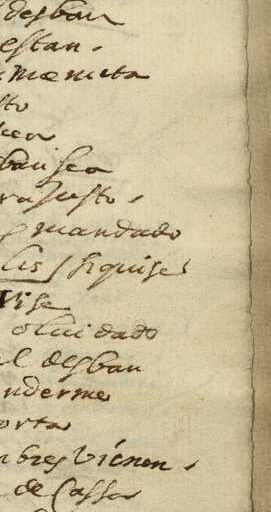 desban
estan.
menita
sto
uen
banisca
ra justo.
mandado
lis / siquises
vise
oluidado
el desban
nderme
orta
mbres vienen.
de Cassa